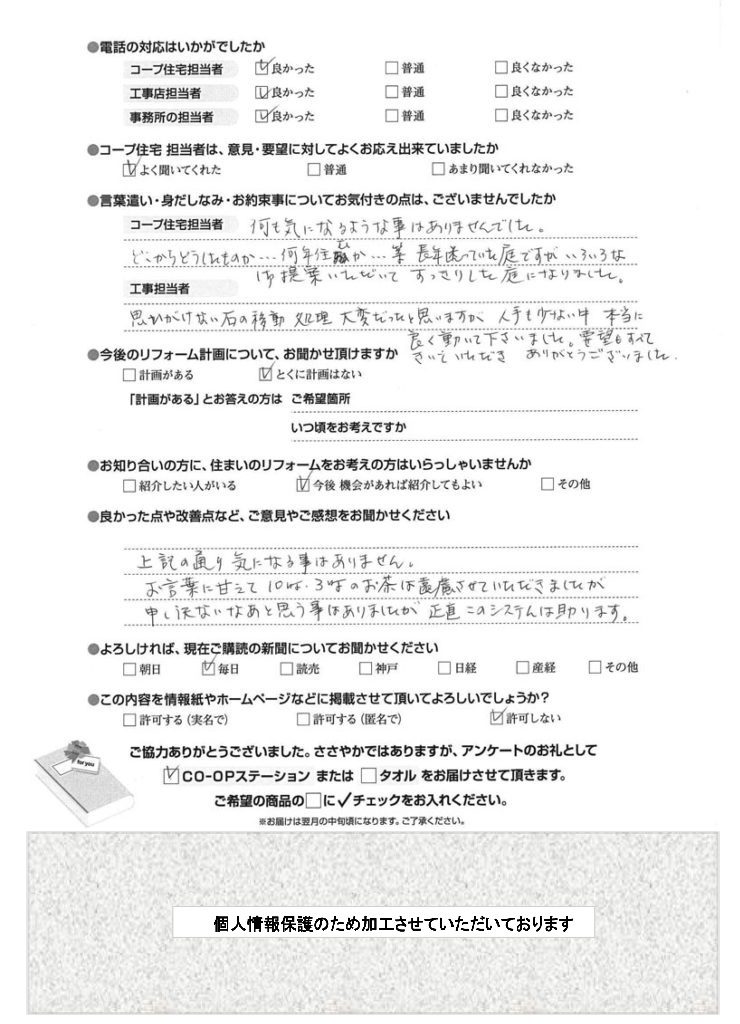 ●電話の対応はいかがでしたか
コープ住宅担当者 ☑良かった □普通 □良くなかった
工事店担当者 ☑良かった □普通 □良くなかった
事務所の担当者 ☑良かった □普通 □良くなかった
●コープ住宅 担当者は、意見・要望に対してよくお応え出来ていましたか
☑よく聞いてくれた □普通 □あまり聞いてくれなかった
●言葉遣い・身だしなみ・お約束事についてお気付きの点は、ございませんでしたか
コープ住宅担当者 何も気になるような事はありませんでした。
どこからどうしたものか…何年住むか…等 長年迷っていた庭ですが いろいろな
御提案いただいて すっきりした庭になりました。
工事担当者
思いがけない石の移動 処理 大変だったと思いますが 人手も少ない中 本当に
良く動いて下さいました。要望もすべて
きいていただき ありがとうございました.
●今後のリフォーム計画について、お聞かせ頂けますか
□計画がある ☑とくに計画はない
「計画がある」とお答えの方は ご希望箇所
いつ頃をお考えですか
●お知り合いの方に、住まいのリフォームをお考えの方はいらっしゃいませんか
□紹介したい人がいる ☑今後 機会があれば紹介してもよい □その他
●良かった点や改善点など、ご意見やご感想をお聞かせください
上記の通り 気になる事はありません。
お言葉に甘えて 10時・3時のお茶は遠慮させていただきましたが
申し訳ないなあと思う事はありましたが 正直 このシステムは助ります。
●よろしければ、現在ご購読の新聞についてお聞かせください
□朝日 ☑毎日 □読売 □神戸 □日経 □産経 □その他
●この内容を情報紙やホームページなどに掲載させて頂いてよろしいでしょうか?
□許可する(実名で) □許可する(匿名で) ☑許可しない
for you
ご協力ありがとうございました。ささやかではありますが、アンケートのお礼として
☑CO-OPステーション または □タオル をお届けさせて頂きます。
ご希望の商品の□に✓チェックをお入れください。
※お届けは翌月の中旬頃になります。ご了承ください。
個人情報保護のため加工させていただいております